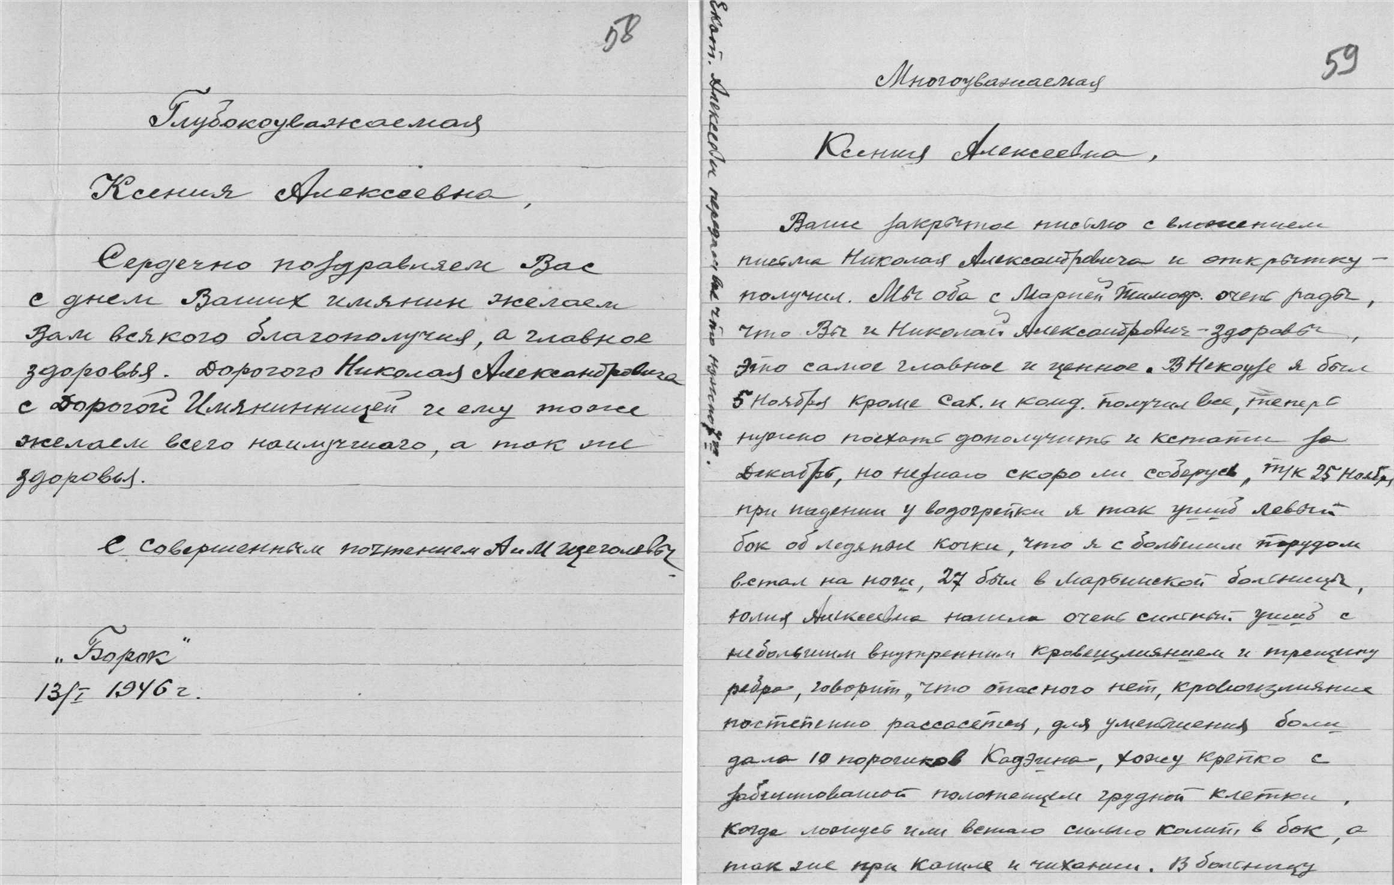 58
Глубокоуважаемая
Ксения Алексеевна,
Сердечно поздравляем Вас
с днем Ваших имянин желаем
Вам всякого благополучия, а главное
здоровья. Дорогого Николая Александровича
с Дорогой Имянинницей и ему тоже
желаем всего наилучшаго, а так же
здоровья.
С совершенным почтением А и М Щеголевы
„Борок"
13/I 1946 г.
Екат. Алексеевне передам все что нужно
59
Многоуважаемая
Ксения Алексеевна,
Ваше закрытое письмо с вложением
письма Николая Александровича и открытку-
получил. Мы оба с Марией Тимоф. очень рады,
что Вы и Николай Александрович-здоровы,
это самое главное и ценное. В Некоузе я был
5 Ноября кроме сах. и конд. получил все, теперь
нужно поехать дополучить и кстати за
Декабрь, но незнаю скоро ли соберусь, т/к 25 Ноября
при падении у водогрейки я так ушиб левый
бок об ледяные кочки, что я с большим трудом
встал на ноги, 27 был в Марьинской больнице,
Юлия Алексеевна нашла очень сильный ушиб с
небольшим внутренним кровеизлиянием и трещину
ребра, говорит, что опасного нет, кровоизлияние
постепенно рассосется, для уменьшения боли
дала 10 порошков Кодэина, хожу крепко с
забинтованной полотенцем грудной клетки,
когда ложусь или встаю сильно колит в бок, а
так же при кашле и чихании. В больницу